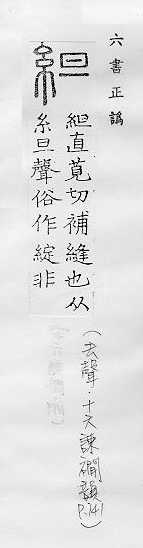 六書正譌
䋎直莧切補縫也从
糸旦聲俗作綻非
(去聲·十六諫襉韻
P.141)